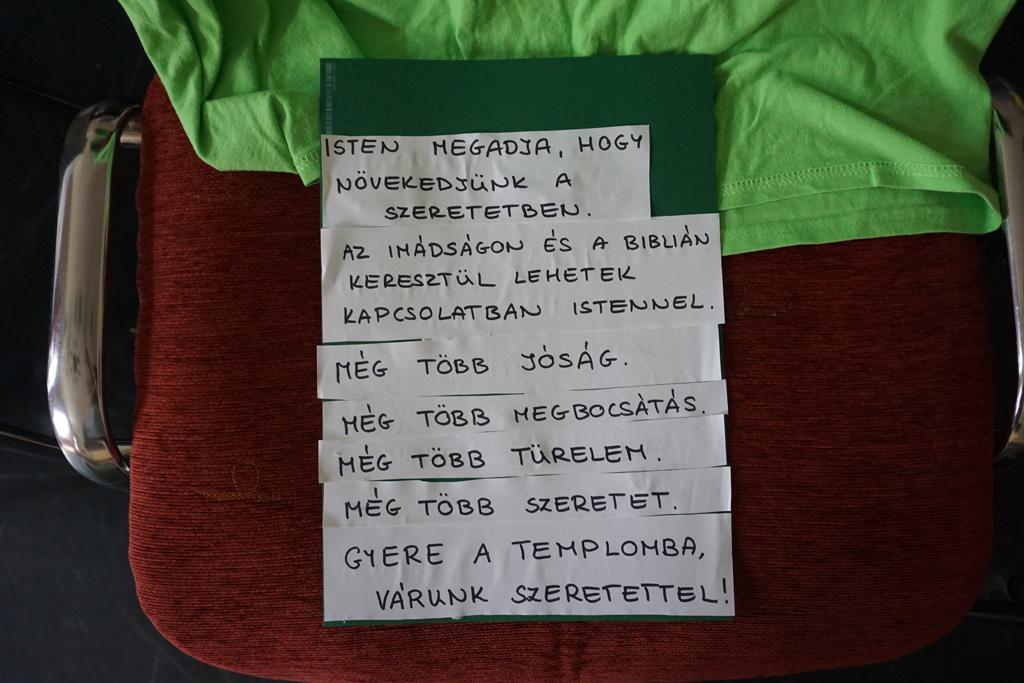 ISTEN MEGADJA, HOGY
NÖVEKEDJÜNK A
SZERETETBEN.
AZ IMÁDSÁGON ÉS A BIBLIÁN
KERESZTÜL LEHETEK
KAPCSOLATBAN ISTENNEL.
MÉG TÖBB JÓSÁG.
MÉG TÖBB MEGBOCSÁTÁS.
MÉG TÖBB TÜRELEM.
MÉG TÖBB SZERETET.
GYERE A TEMPLOMBA,
VÁRUNK SZERETETTEL!